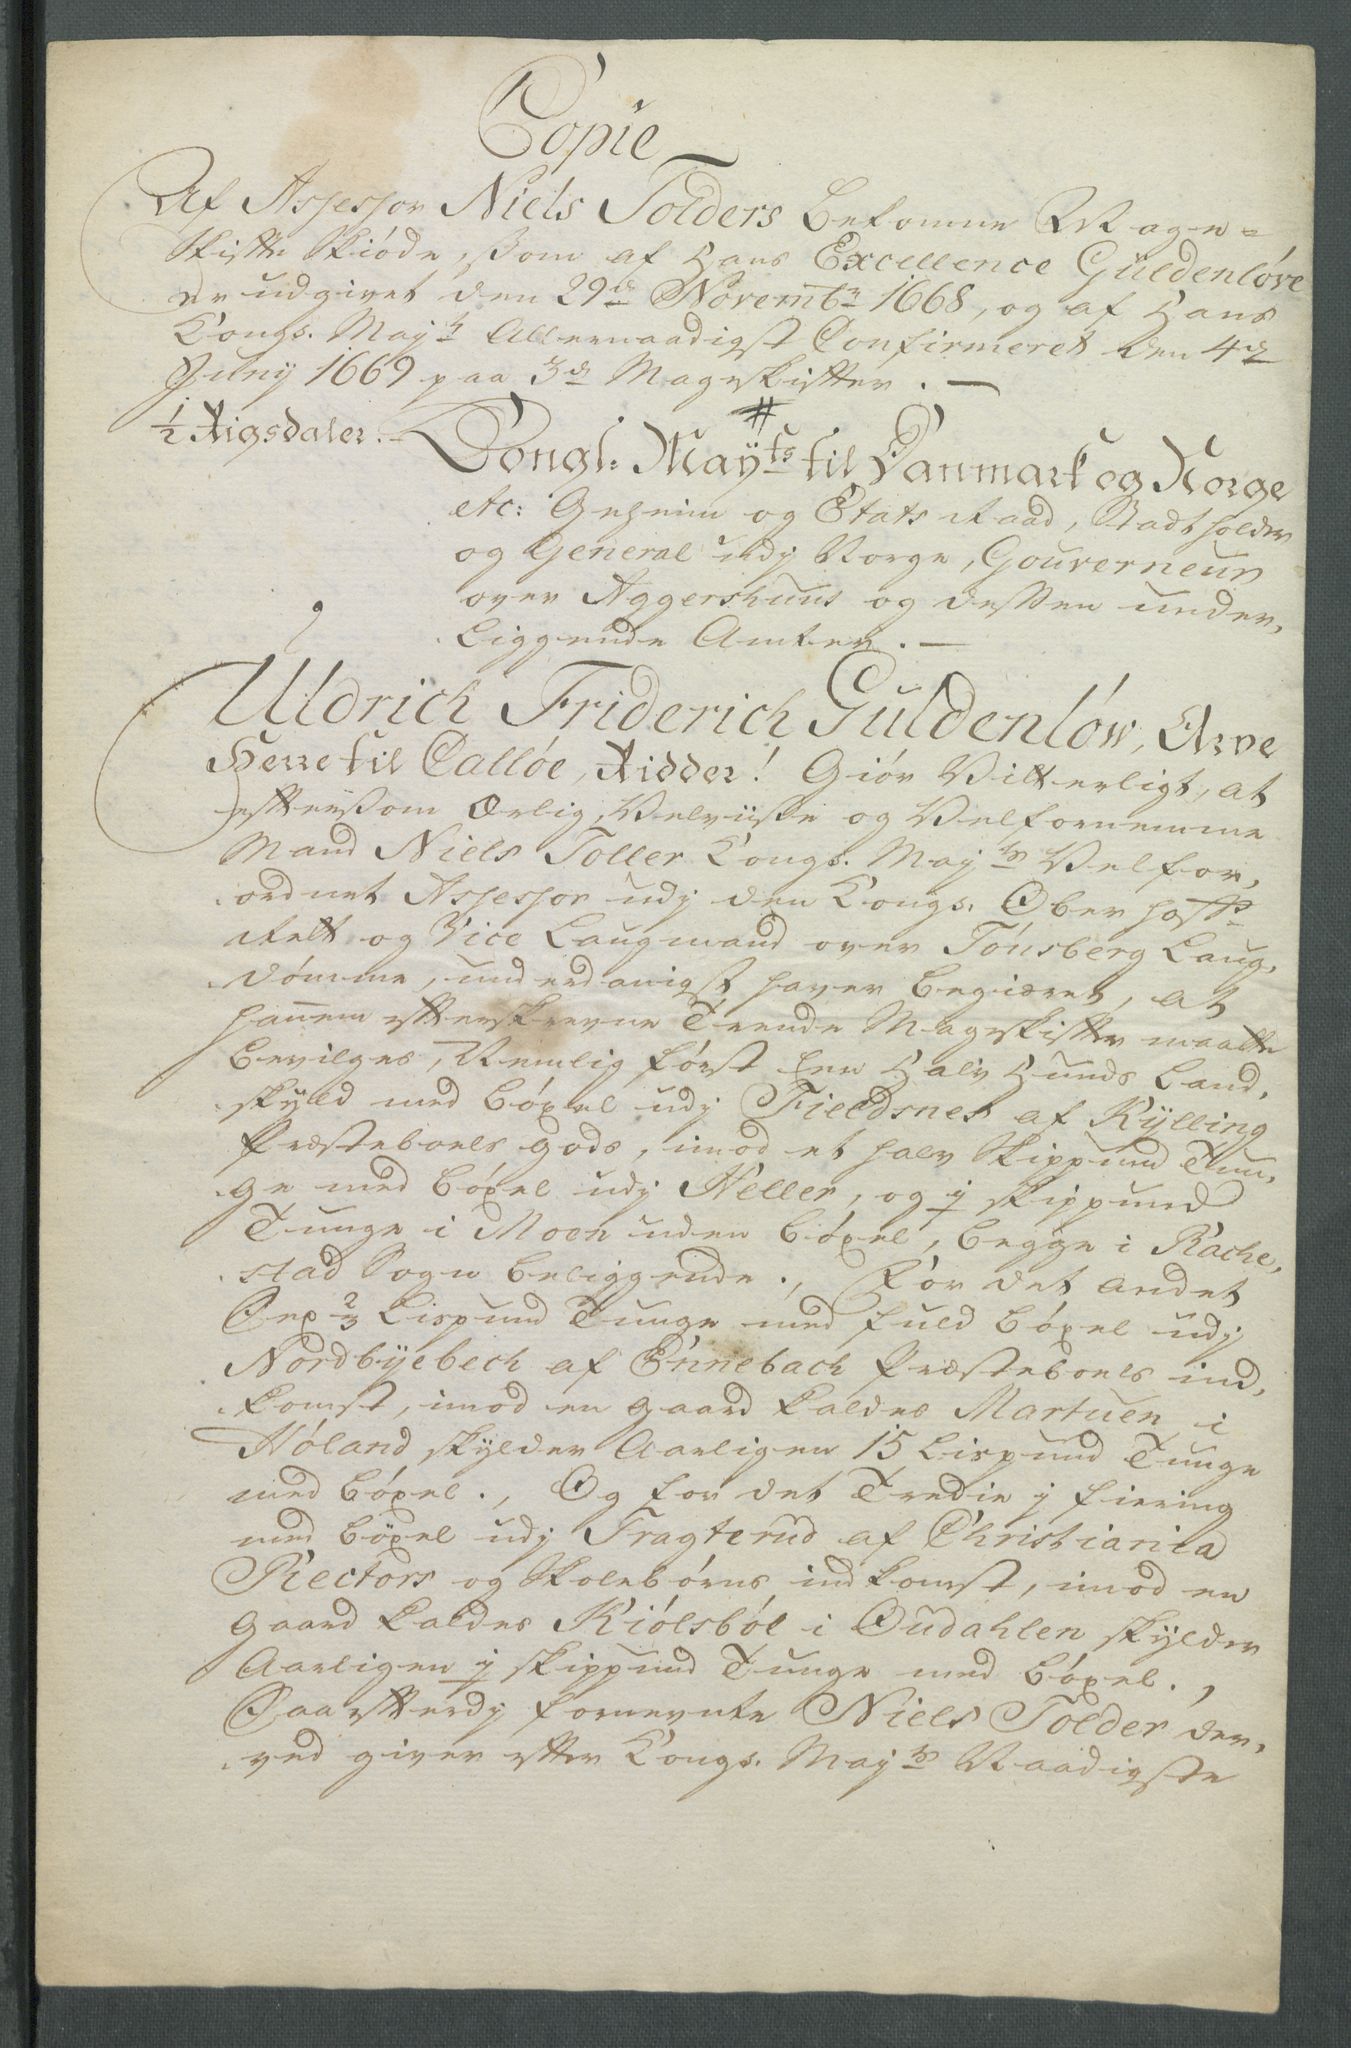 Copie
Af Assessor Niels Tolders bekomne Mage-
skifte Skiøde, som af Hans Excellence Güldenløve
er udgivet den 29de Novembr 1668, og af Hans
Kongl. Mayts Allernaadigst Confirmeret den 4de
Juny 1669 paa 3de Mageskifter. —
½ Rigsdaler.
#
Kongl: Maÿts til Danmark og Norge
etc: Geheim og Etats Raad, Stadtholder
og General udj Norge, Gouverneur
over Aggershuus og dessen under,
liggende Amter. —
Uldrich Friderich Guldenløw, Arve
Herre til Calløe, Ridder! Giør Vitterligt, at
eftersom Ærlig, Velviise og Velfornemme
Mand Niels Toller Kongs. Mayts Velfor,
ordnet Assessor udj den Kongs. Ober Hoff
Rett og Vice Laugmand over Tønsberg Laug,
dømme, underdanigst haver begiæret, at
hanem efterskrevne Trende Mageskifter maatte
bevilges, Nemlig først Een Halv Hunds Land,
skyld med bøxel udj Fieldsnes af Kÿlling
Præsteboels Gods, imod et halv Skippund Tun,
ge med bøxel udj Heller, og j Skippund
Tunge i Moen uden bøxel, begge i Racke,
stad Sogn beliggende., For det andet
Sex 2/3 Lispund Tunge med fuld bøxel udj
Nordbÿebech af Ennebach Præsteboels ind,
komst, imod en gaard kaldes Martuen i
Høland, skylder Aarligen 15 Lispund Tunge
med bøxel., Og for det Tredie j fiering
med bøxel udj Fragterud af Christiania
Rectors og Skolebørns indkomst, imod en
Gaard kaldes Kiølsbøl i Oudahlen skylder
Aarligen j skippund Tunge med bøxel.,
Saa efterdj fornevnte Niels Tolder der,
ved giver efter Kongs. Mayts Naadigste